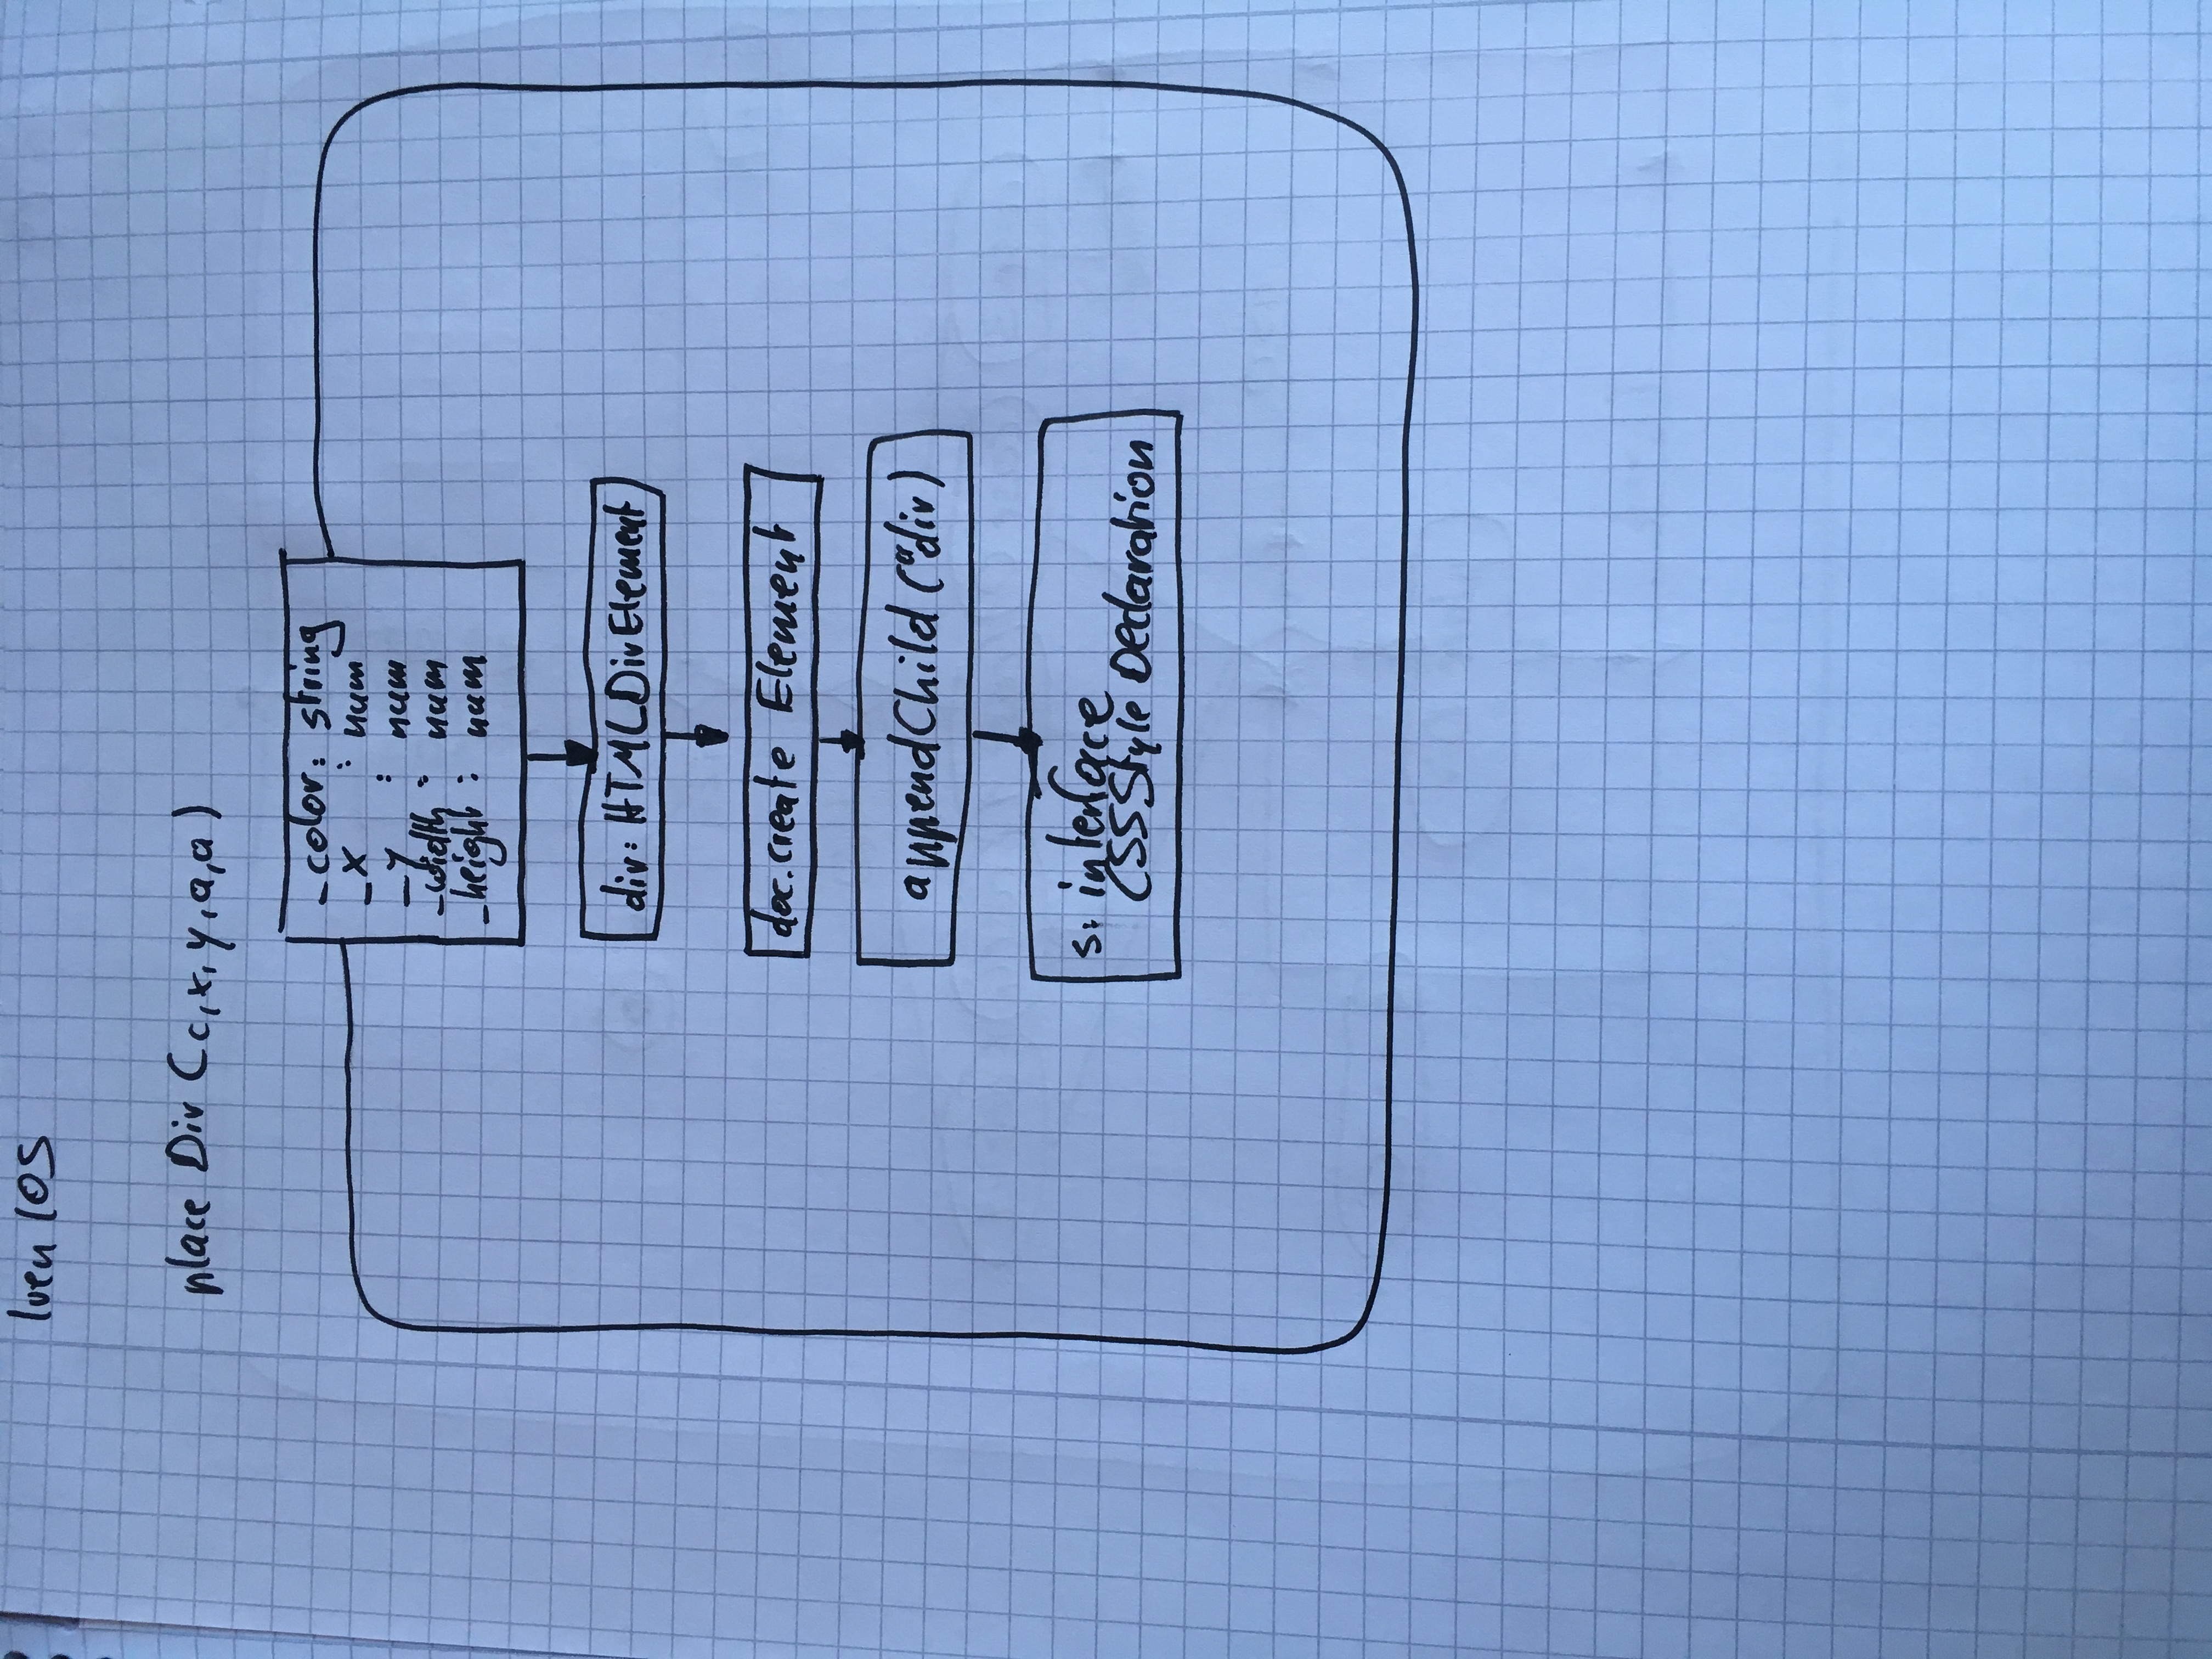 place Div (c, x, y, a, a)
_color: string
_x : num
_y : num
_width : num
_height : num
div: HTMLDivElement
doc.create Element
appendChild ("div)
s: interface
CSSStyle Declaration